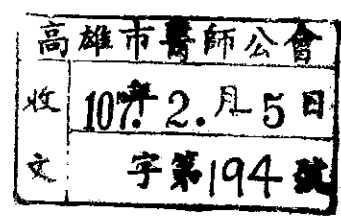 高雄市醫師公會
收文
107年2.月5日
字第194號